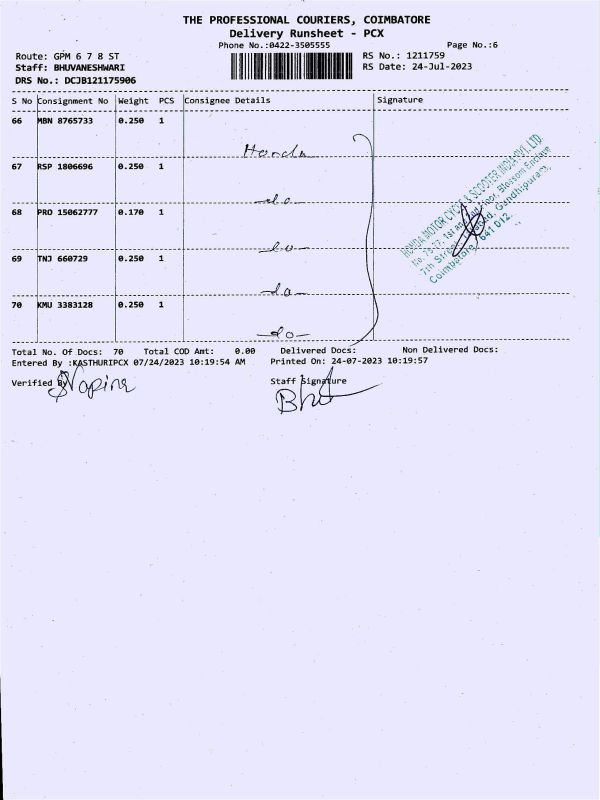 THE PROFESSIONAL COURIERS, COIMBATORE
Delivery Runsheet - PCX
Phone No.:0422-3505555
Page No.:6
Route: GPM 6 7 8 ST
RS No.: 1211759
Staff: BHUVANESHWARI
RS Date: 24-Jul-2023
DRS No.: DCJB121175906
S No Consignment No Weight PCS Consignee Details Signature
66 MBN 8765733 0.250 1
Honda
67 RSP 1806696 0.250 1
-do-
68 PRO 15062777 0.170 1
-do-
69 TNJ 660729 0.250 1
-do-
70 KMU 3383128 0.250 1
-do-
HONDA MOTOR CYCLE & SCOOTER INDIA PVT. LTD.
Floor, Blossom Enclave
7th Street, Gandhipuram,
Coimbatore - 641 012.
Total No. Of Docs: 70 Total COD Amt: 0.00 Delivered Docs: Non Delivered Docs:
Entered By :KASTHURIPCX 07/24/2023 10:19:54 AM Printed On: 24-07-2023 10:19:57
Verified By
Staff Signature